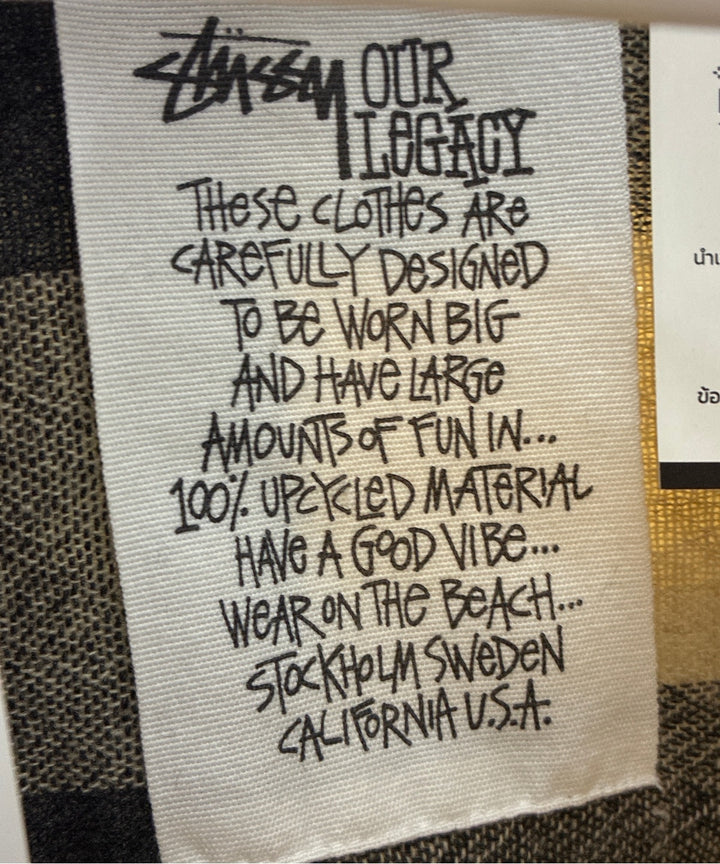 Stüssy OUR
LEGACY
THeSe CLOTHeS ARe
CAReFULLY DeSIGNeD
TO Be WORN BIG
AND HAVe LARGe
AMOUNTS OF FUN IN...
100% UPCYCLeD MATeRIAL
HAVe A GOOD VIBe...
WeAR ON THe BeACH...
STOCKHOLM SWeDeN
CALIFORNIA U.S.A.